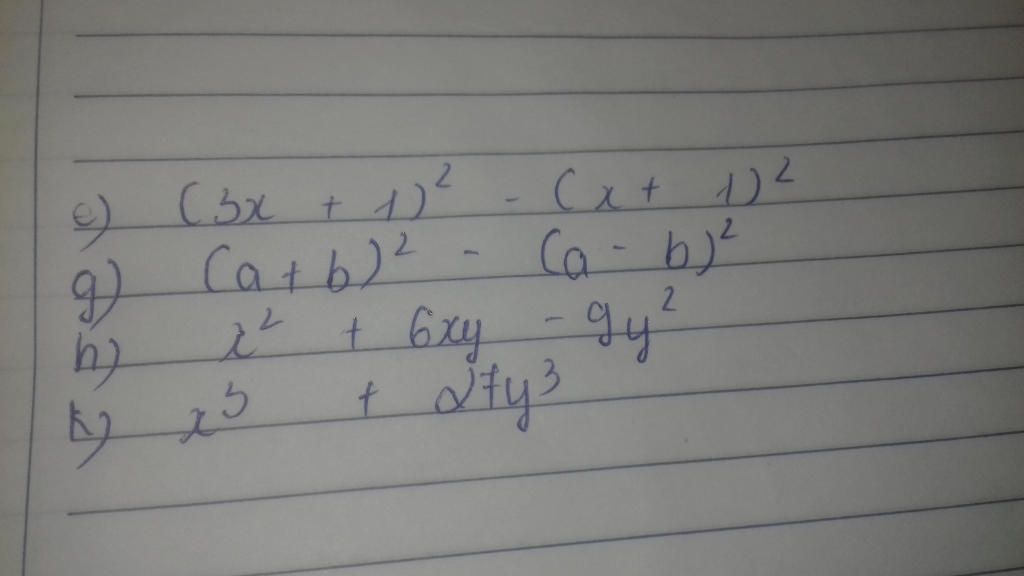 e) (3x + 1)² - (x + 1)²
g) (a + b)² - (a - b)²
h) x² + 6xy - 9y²
k) x³ + 27y³